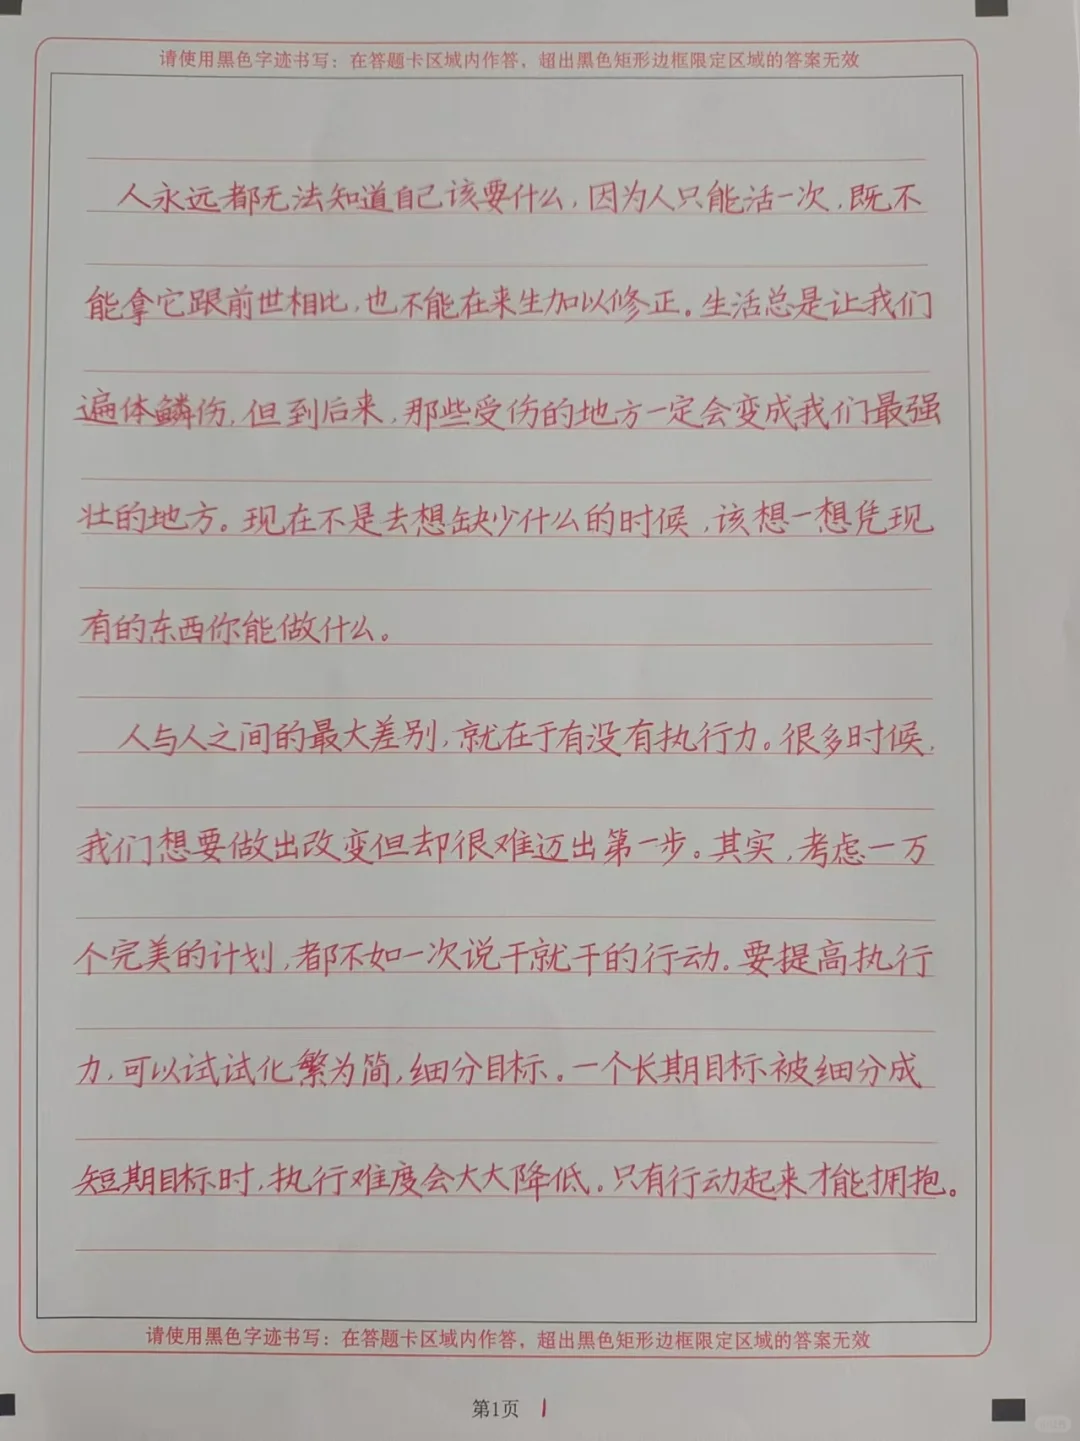 请使用黑色字迹书写：在答题卡区域内作答，超出黑色矩形边框限定区域的答案无效
人永远都无法知道自己该要什么，因为人只能活一次，既不
能拿它跟前世相比，也不能在来生加以修正。生活总是让我们
遍体鳞伤，但到后来，那些受伤的地方一定会变成我们最强
壮的地方。现在不是去想缺少什么的时候，该想一想凭现
有的东西你能做什么。
人与人之间的最大差别，就在于有没有执行力。很多时候，
我们想要做出改变但却很难迈出第一步。其实，考虑一万
个完美的计划，都不如一次说干就干的行动。要提高执行
力，可以试试化繁为简，细分目标。一个长期目标被细分成
短期目标时，执行难度会大大降低。只有行动起来才能拥抱。
请使用黑色字迹书写：在答题卡区域内作答，超出黑色矩形边框限定区域的答案无效
第1页 1